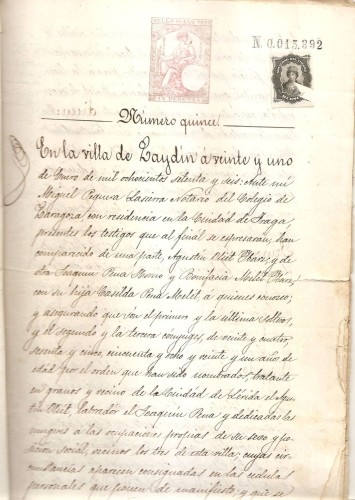 N. 0.015,892
Número quince.
En la villa de Zaydín á veinte y uno
de Enero de mil ochocientos setenta y seis: Ante mí
Miguel Peguera Lasierra Notario del Colegio de
Zaragoza con residencia en la Ciudad de Fraga
presentes los testigos que al final se espresarán, han
comparecido de una parte, Agustín y de
otra Joaquín Pena y Bonifacia
con su hija Casilda Pena á quienes conozco;
y asegurando que son el primero y la última solteros,
y el segundo y la tercera cónyuges, de veinte y cuatro,
sesenta y cinco, cincuenta y ocho y veinte y un años de
edad por el orden que han sido nombrados, tratante
en granos y vecino de la Ciudad de Lérida el Agus-
tín labrador el Joaquín Pena y dedicadas las
mugeres á las ocupaciones propias de su sexo y po-
sición social, vecinos los tres de esta villa; cuyas cir-
cunstancias aparecen consignadas en las cédulas
personales que ponen de manifiesto, y que se